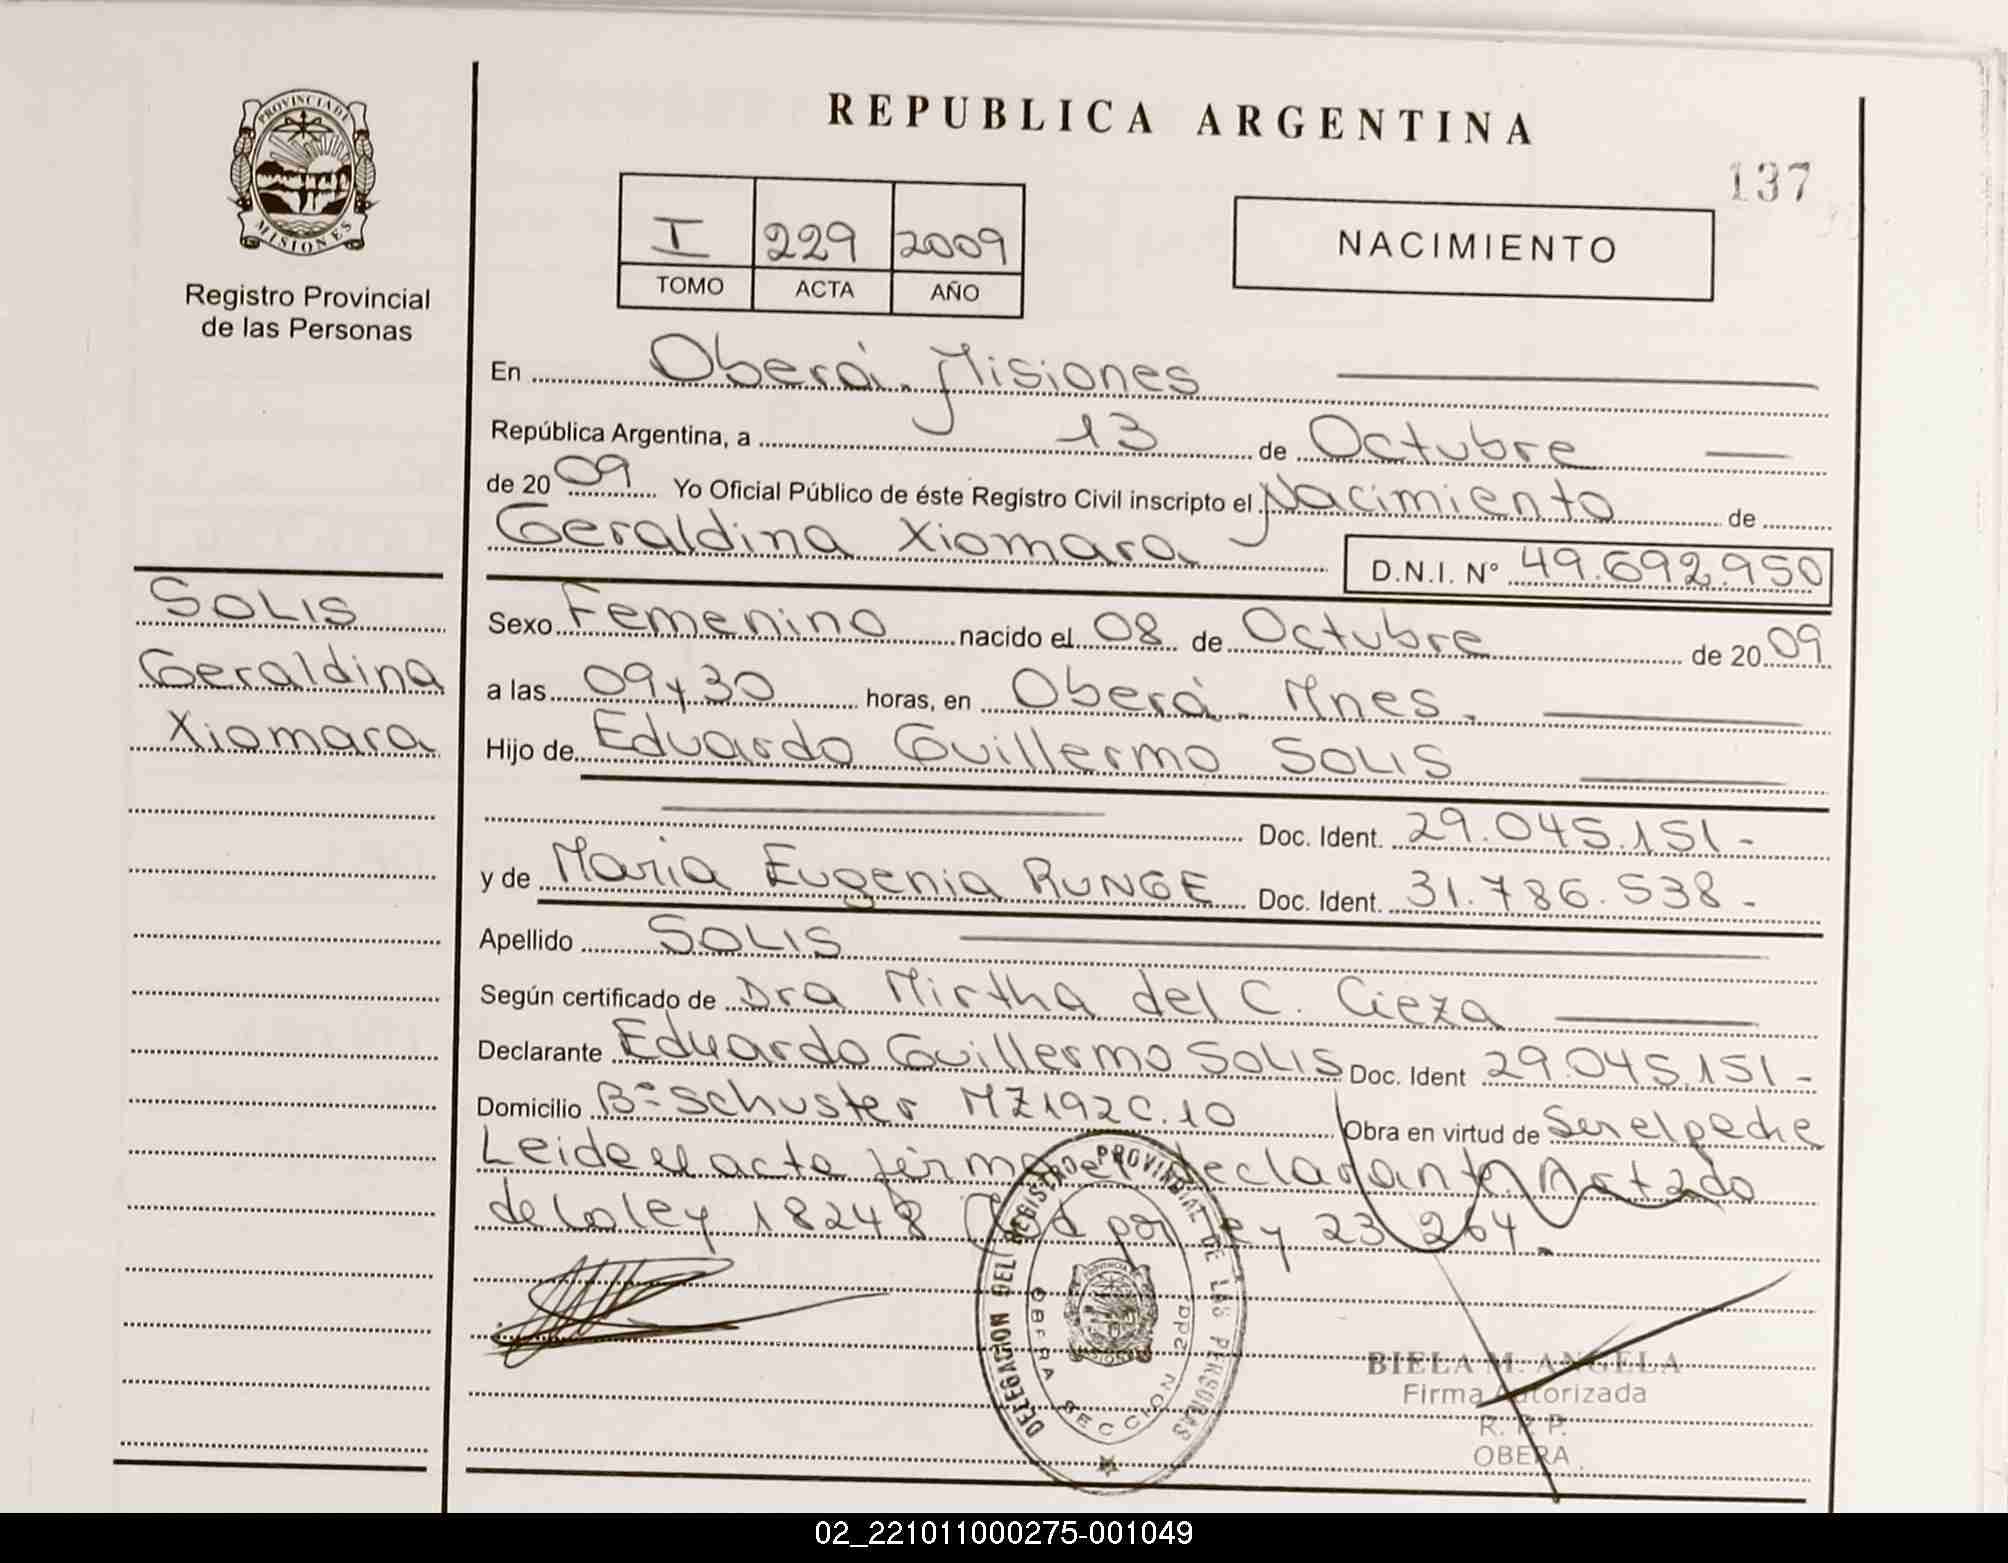 REPUBLICA ARGENTINA
137
PROVINCIA DE
MISIONES
Registro Provincial
de las Personas
I 229 2009
TOMO ACTA AÑO
NACIMIENTO
En Oberá. Misiones
República Argentina, a 13 de Octubre
de 2009 Yo Oficial Público de éste Registro Civil inscripto el Nacimiento de
Geraldina Xiomara D.N.I. N° 49.692.950
SOLIS
Geraldina
Xiomara
Sexo Femenino nacido el 08 de Octubre de 2009
a las 09 y 30 horas, en Oberá. Mnes.
Hijo de Eduardo Guillermo SOLIS
Doc. Ident. 29.045.151-
y de Maria Eugenia RUNGE Doc. Ident. 31.786.538-
Apellido SOLIS
Según certificado de Dra Mirtha del C. Cieza
Declarante Eduardo Guillermo SOLIS Doc. Ident 29.045.151-
Domicilio B° Schuster MZ192C.10 Obra en virtud de
Leida el acta firma el declarante
de la ley 18248 por ley 23 264.
DELEGACION DEL REGISTRO PROVINCIAL DE LAS PERSONAS
OBERA SECCION 2da
BIELA M. ANGELA
Firma Autorizada
R. P. P.
OBERA
02_221011000275-001049